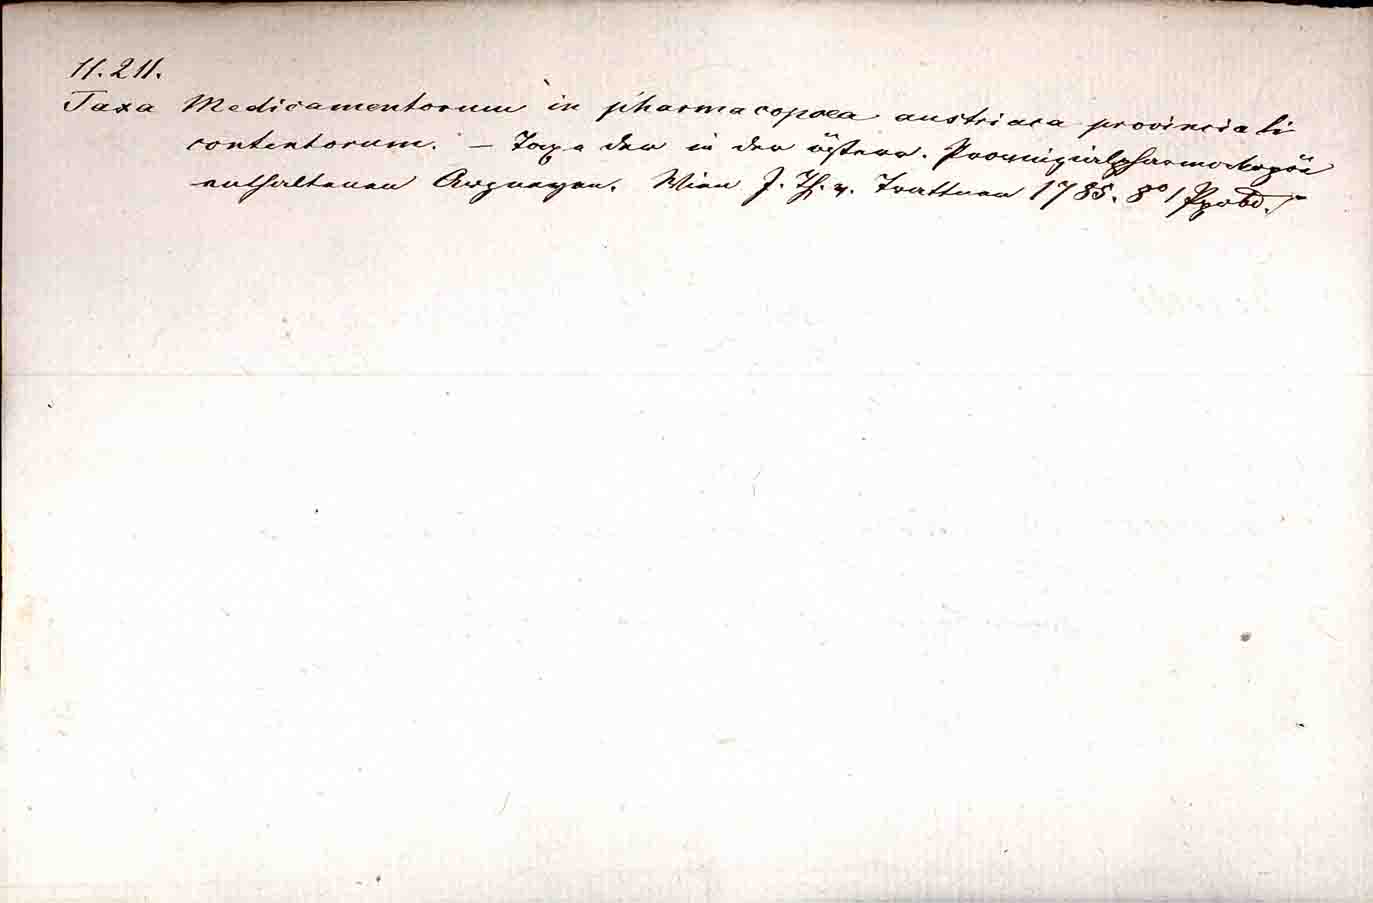 11.211.
Taxa Medicamentorum in pharmacopoea austriaca provinciali
contentorum. – Taxe der in der österr. Provinzialpharmakopöe
enthaltenen Arzneyen. Wien J. Th. v. Trattnern 1785. 8° / Ppbd. /